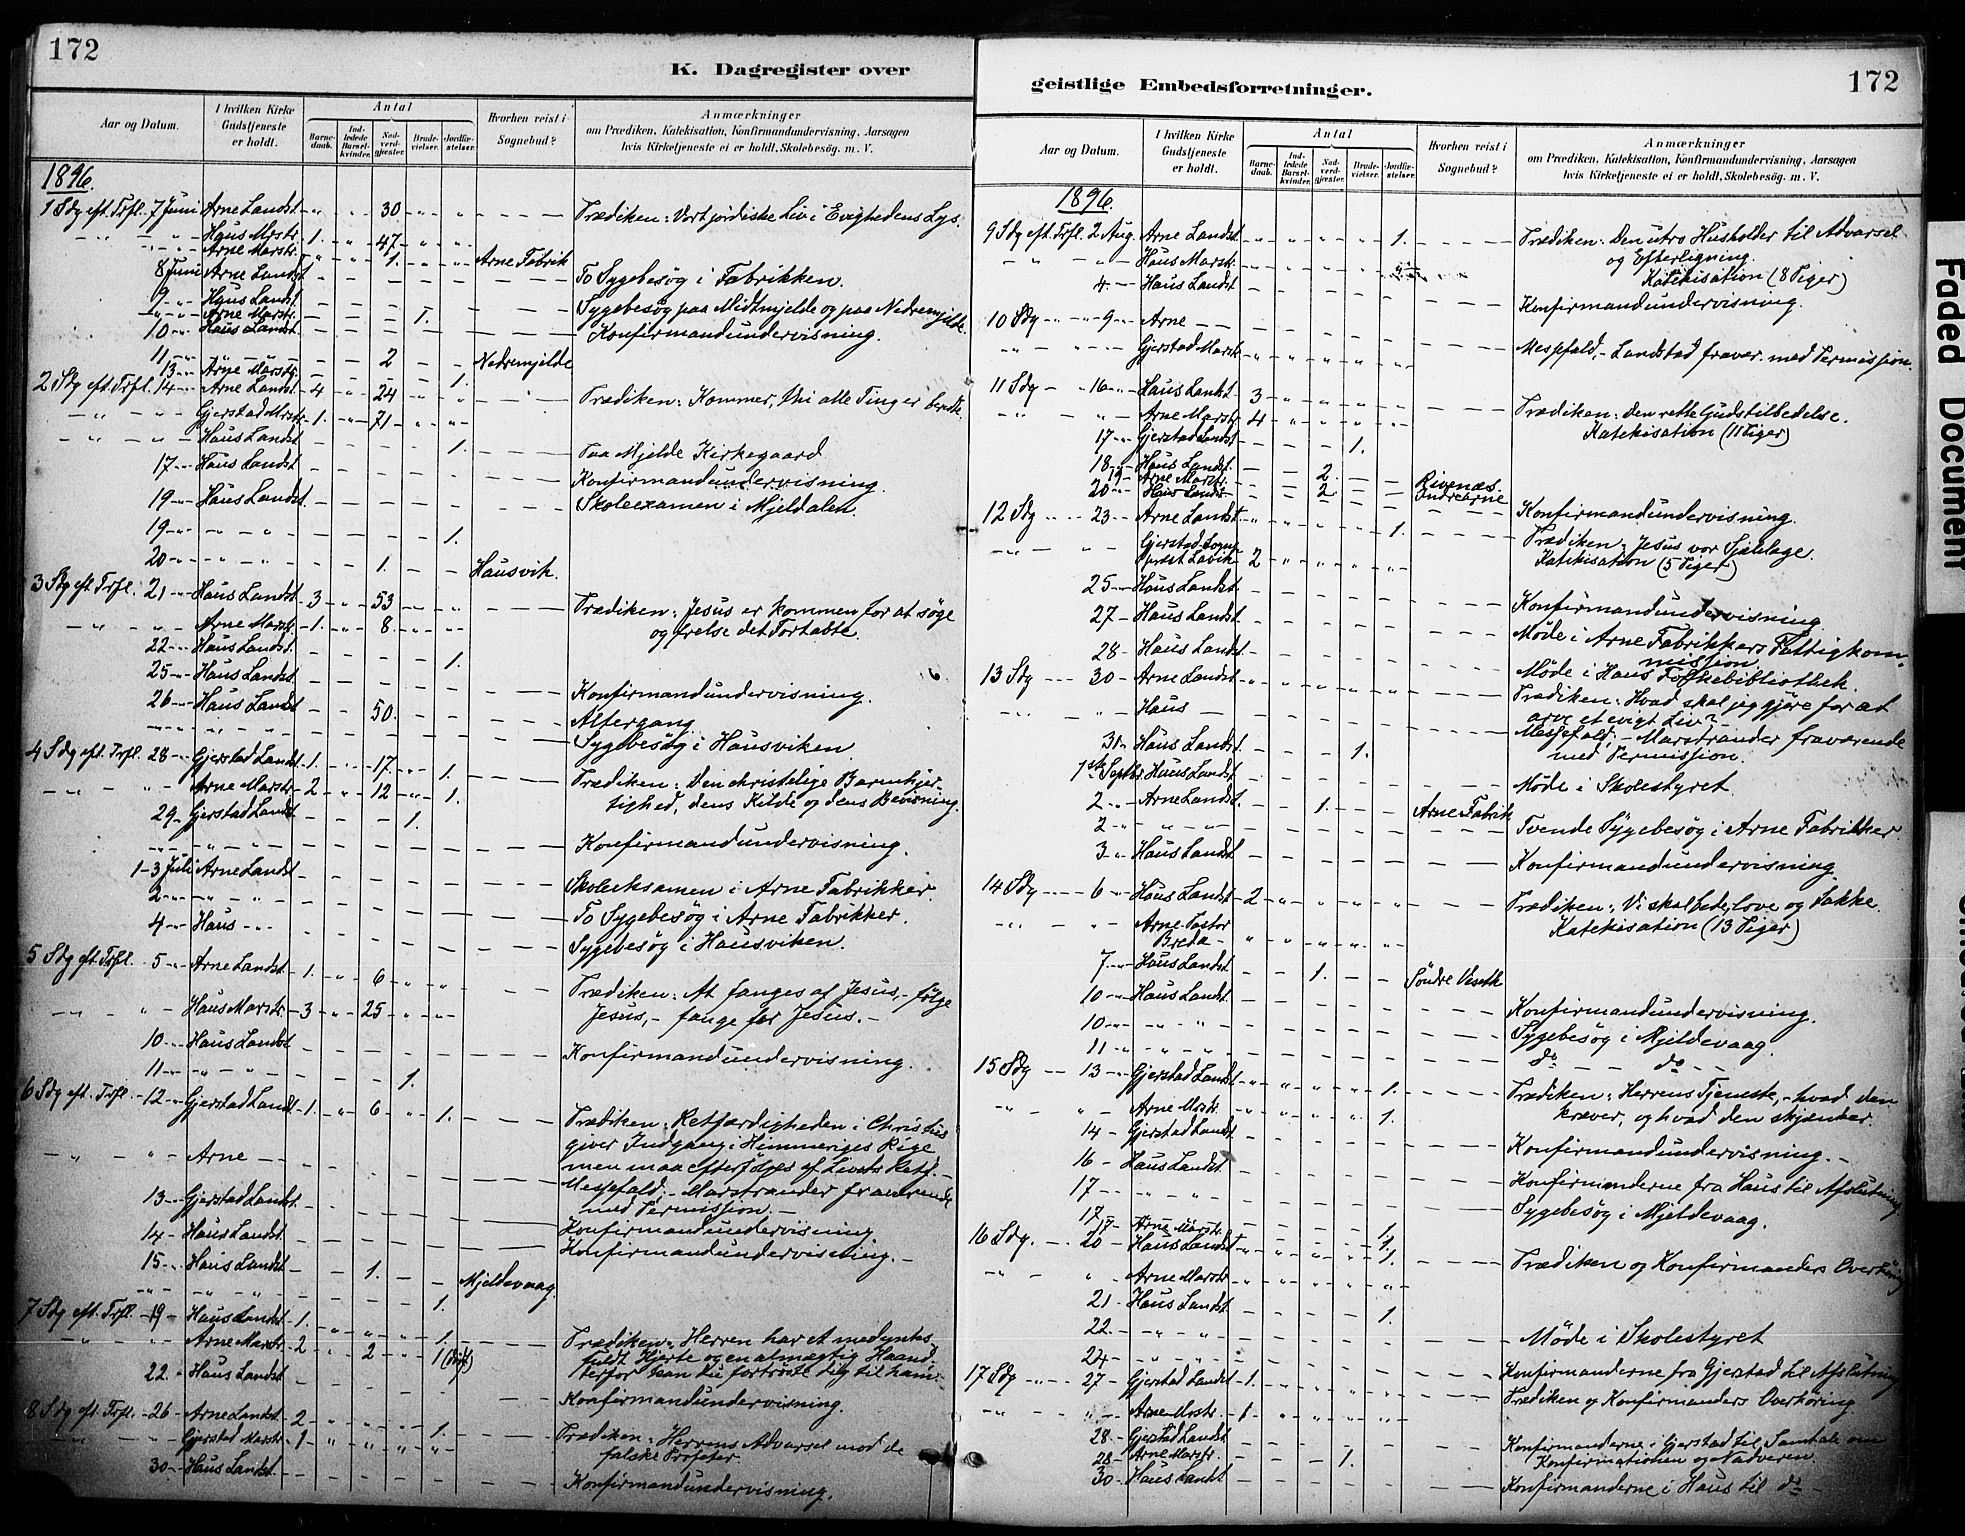 172
K. Dagregister over
Aar og Datum.
I hvilken Kirke Gudstjeneste er holdt.
Antal
Barnedaab.
Indledede Barselkvinder.
Nadverdgjæster.
Brudevielser.
Jordfæstelser.
Hvorhen reist i Sognebud?
Anmærkninger
om Prædiken, Katekisation, Konfirmandundervisning, Aarsagen
hvis Kirketjeneste ei er holdt, Skolebesøg. m. V.
1896.
1 Sdg eft. Trfl. 7 Juni Arne Landst. 30 Prædiken: Vort jordiske Liv i Evighedens Lys.
Haus Marstr. 1. 47.
Arne Marstr. 1. Arne Fabrik
8 Juni Arne Landst. To Sygebesøg i Fabrikken.
9 Haus Landst. Sygebesøg paa Midtmjelde og paa Nedremjelde
Arne Marstr. 1.
10 Haus Landst. Konfirmandundervisning.
11 Arne Marstr. 2 Nedremjelde
13 1.
2 Sdg eft. Trfl. 14 Arne Landst. 4 24 Prædiken: Kommer, thi alle Ting er beredte
Gjerstad Marstr. 1. 71
Haus Landst. 1. Paa Mjelde Kirkegaard
17 Haus Landst. Konfirmandundervisning.
19 Haus Landst. Skoleexamen i Mjeldalen
19 1.
20 1. Hausvik.
3 Sdg eft. Trfl. 21 Haus Landst. 3 53 Prædiken: Jesus er kommen for at søge
og frelse det Fortabte.
Arne Marstr. 1. 8.
22 Haus Landst. 1.
25 Haus Landst. Konfirmandundervisning.
26 Haus Landst. 50. Altergang
Sygebesøg i Hausviken.
4 Sdg eft. Trfl. 28 Gjerstad Landst. 1. 17 1. Prædiken: Den christelige Barmhjer-
tighed, dens Kilde og dens Bevisning.
Arne Marstr. 2 12 1.
29 Gjerstad Landst. 1.
Konfirmandundervisning.
1-3 Juli Arne Landst. Skoleeksamen i Arne Fabrikker.
2 To Sygebesøg i Arne Fabrikker.
4 Haus Sygebesøg i Hausviken.
5 Sdg eft. Trfl. 5 Arne Landst. 1. 6 Prædiken: At fanges af Jesus, - følge
Jesus, - fange for Jesus. -
Haus Marstr. 3 25
10 Haus Landst. Konfirmandundervisning.
11 1.
6 Sdg eft. Trfl. 12 Gjerstad Landst. 1. 6 1. Prædiken: Retfærdigheden i Christus
giver Indgang i Himmeriges Rige
men maa efterfølges af Livets Retf. -
Arne Messefald. - Marstrander fraværende
med Permission. -
13 Gjerstad Landst. Konfirmandundervisning
14 Haus Landst. Konfirmandundervisning. -
15 Haus Landst. 1. Mjeldevaag.
1.
7 Sdg eft. Trfl. 19 Haus Landst. 1. 1. Prædiken: Herren har et medynks
fuldt Hjerte og en almægtig Haand
derfor kan du fortrøste dig til ham.
Arne Marstr. 2 2 1
22. Haus Landst. Konfirmandundervisning.
8 Sdg eft. Trfl. 26 Arne Landst. 2 1. Prædiken: Herrens Advarsel mod de
falske Profeter.
Gjerstad Marstr. 1
30 Haus Landst. Konfirmandundervisning.
geistlige Embedsforretninger.
172
Aar og Datum.
I hvilken Kirke Gudstjeneste er holdt.
Antal
Barnedaab.
Indledede Barselkvinder.
Nadverdgjæster.
Brudevielser.
Jordfæstelser.
Hvorhen reist i Sognebud?
Anmærkninger
om Prædiken, Katekisation, Konfirmandundervisning, Aarsagen
hvis Kirketjeneste ei er holdt, Skolebesøg. m. V.
1896.
9 Sdg eft. Trfl. 2 Aug. Arne Landst. 1. Prædiken: Den utro Husholder til Advarsel
og Efterligning.
Haus Marstr. Katekisation (8 Piger)
4 Haus Landst. Konfirmandundervisning.
10 Sdg 9 Arne Messefald. - Landstad fravær. med Permission.
Gjerstad Marstr.
11 Sdg 16 Haus Landst. 3 Prædiken: den rette Gudstilbedelse.
Katekisation (11 Piger)
Arne Marstr. 4
17 Gjerstad Landst. 1.
18 Haus Landst. 2 Rivenæs.
19 Arne Marstr. 2 Indrearne
20 Haus Landst. Konfirmandundervisning.
12 Sdg 23 Arne Landst. 1. Prædiken: Jesus vor Sjælelæge.
Katekisation (5 Piger)
Gjerstad Sogneprest Lavik 2
25 Haus Landst. Konfirmandundervisning
27 Haus Landst. Møde i Arne Fabrikkers Fattigkom-
mission
28 Haus Landst. Møde i Haus Folkebibliothek.
13 Sdg 30 Arne Landst. Prædiken: Hvad skal jeg gjøre for at
arve et evigt Liv?
Haus Messefald. - Marstrander fraværende
med Permission.
31 Haus Landst. 1.
1ste Septbr. Haus Landst. Møde i Skolestyret
2 Arne Landst. 1. Arne Fabrik
2 Tvende Sygebesøg i Arne Fabrikker
3 Haus Landst. Konfirmandundervisning
14 Sdg 6 Haus Landst. 2 Prædiken: Vi skal bede, love og takke.
Katekisation (13 Piger)
Arne Pastor Breda
7 Haus Landst. 1. Söndre Veseth
10 Haus Landst. Konfirmandundervisning.
10 Sygebesøg i Mjeldevaag.
11 do do
15 Sdg 13 Gjerstad Landst. 1. Prædiken: Herrens Tjeneste, - hvad den
kræver, og hvad den skjænker.
Arne Mostr. 1.
14 Gjerstad Landst. Konfirmandundervisning. -
16 Haus Landst. Konfirmanderne fra Haus til Afslutning
17 Sygebesøg i Mjeldevaag.
17 1.
17 Arne Marstr. 1.
16 Sdg. 20 Haus Landst. 1. Prædiken og Konfirmanders Overhöring
Arne Marstr.
21 Haus Landst. 1.
22. Møde i Skolestyret
24 Konfirmanderne fra Gjerstad til Afslutning
17 Sdg 27 Gjerstad Landst. 1. Prædiken og Konfirmanders Overhöring.
Arne Mostr. 1
28 Gjerstad Landst. Konfirmanderne i Gjerstad til Samtale om
Konfirmationen og Nadveren.
28 Arne Marstr. 1.
30 Haus Landst. Konfirmanderne i Haus til do
Faded Document